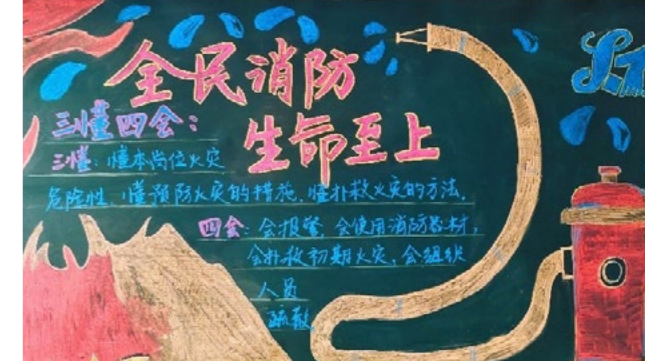 全民消防
生命至上
三懂四会：
三懂：懂本岗位火灾
危险性、懂预防火灾的措施、懂扑救火灾的方法.
四会：会报警、会使用消防器材，
会扑救初期火灾，会组织
人员
疏散